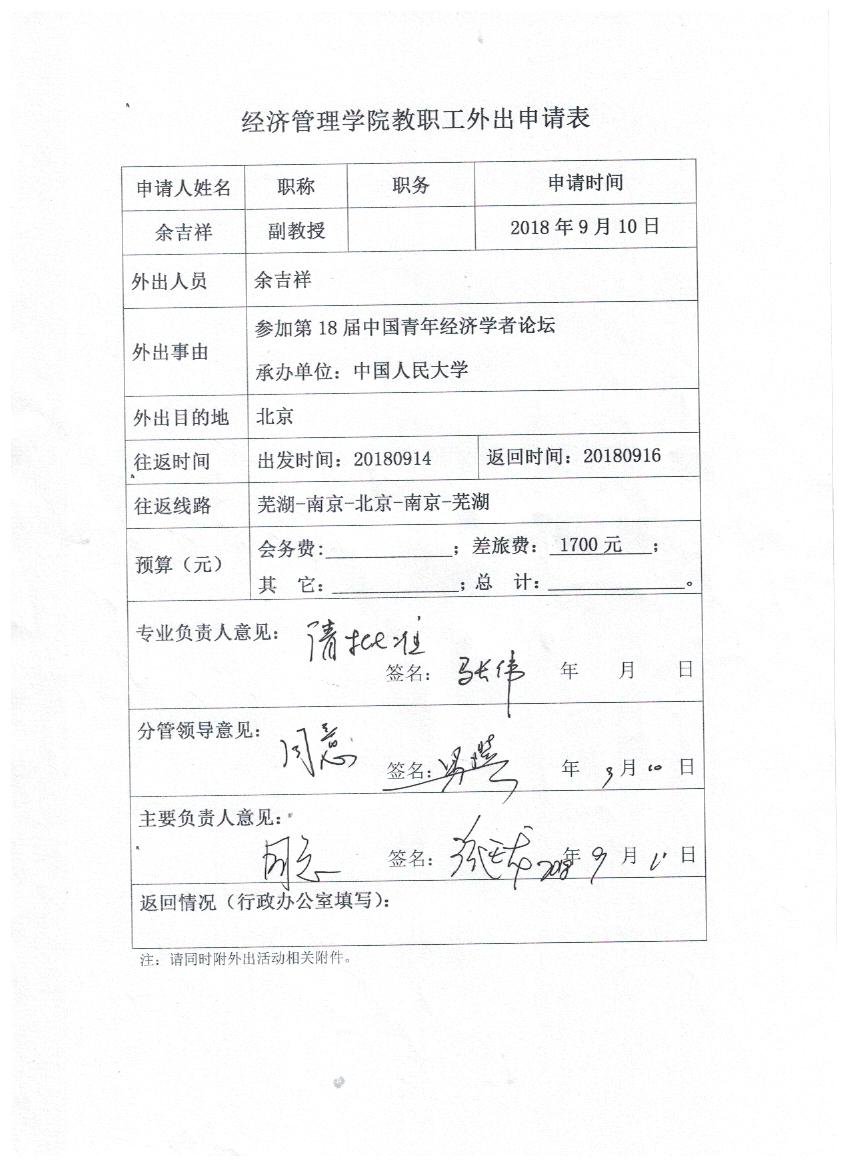 经济管理学院教职工外出申请表
申请人姓名 职称 职务 申请时间
余吉祥 副教授 2018年9月10日
外出人员 余吉祥
外出事由 参加第18届中国青年经济学者论坛
承办单位：中国人民大学
外出目的地 北京
往返时间 出发时间：20180914 返回时间：20180916
往返线路 芜湖-南京-北京-南京-芜湖
预算（元） 会务费:____________；差旅费：1700元；
其 它：____________；总 计：____________。
专业负责人意见： 请批准
签名：马长伟 年 月 日
分管领导意见： 同意
签名： 年 9月10日
主要负责人意见： 同意
签名： 2018年9月 日
返回情况（行政办公室填写）：
注：请同时附外出活动相关附件。